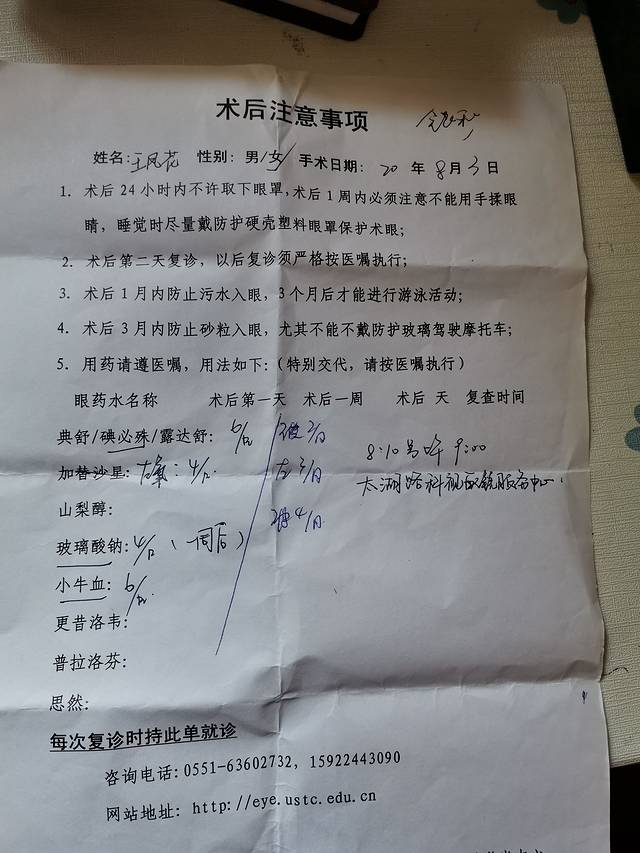 术后注意事项
姓名: 王凤花 性别: 男/女 手术日期: 20 年 8月 3 日
1. 术后 24 小时内不许取下眼罩, 术后 1 周内必须注意不能用手揉眼
睛, 睡觉时尽量戴防护硬壳塑料眼罩保护术眼;
2. 术后第二天复诊, 以后复诊须严格按医嘱执行;
3. 术后 1 月内防止污水入眼, 3 个月后才能进行游泳活动;
4. 术后 3 月内防止砂粒入眼, 尤其不能不戴防护玻璃驾驶摩托车;
5. 用药请遵医嘱, 用法如下: (特别交代, 请按医嘱执行)
眼药水名称 术后第一天 术后一周 术后 天 复查时间
典舒/碘必殊/露达舒: 6/日 2/日
8.10号 9:00
加替沙星: 左氧: 4/日 左 3/日
太湖路科视配镜服务中心
山梨醇: 4/日
玻璃酸钠: 4/日 (一周后)
小牛血: 6/日
更昔洛韦:
普拉洛芬:
思然:
每次复诊时持此单就诊
咨询电话: 0551-63602732, 15922443090
网站地址: http://eye.ustc.edu.cn